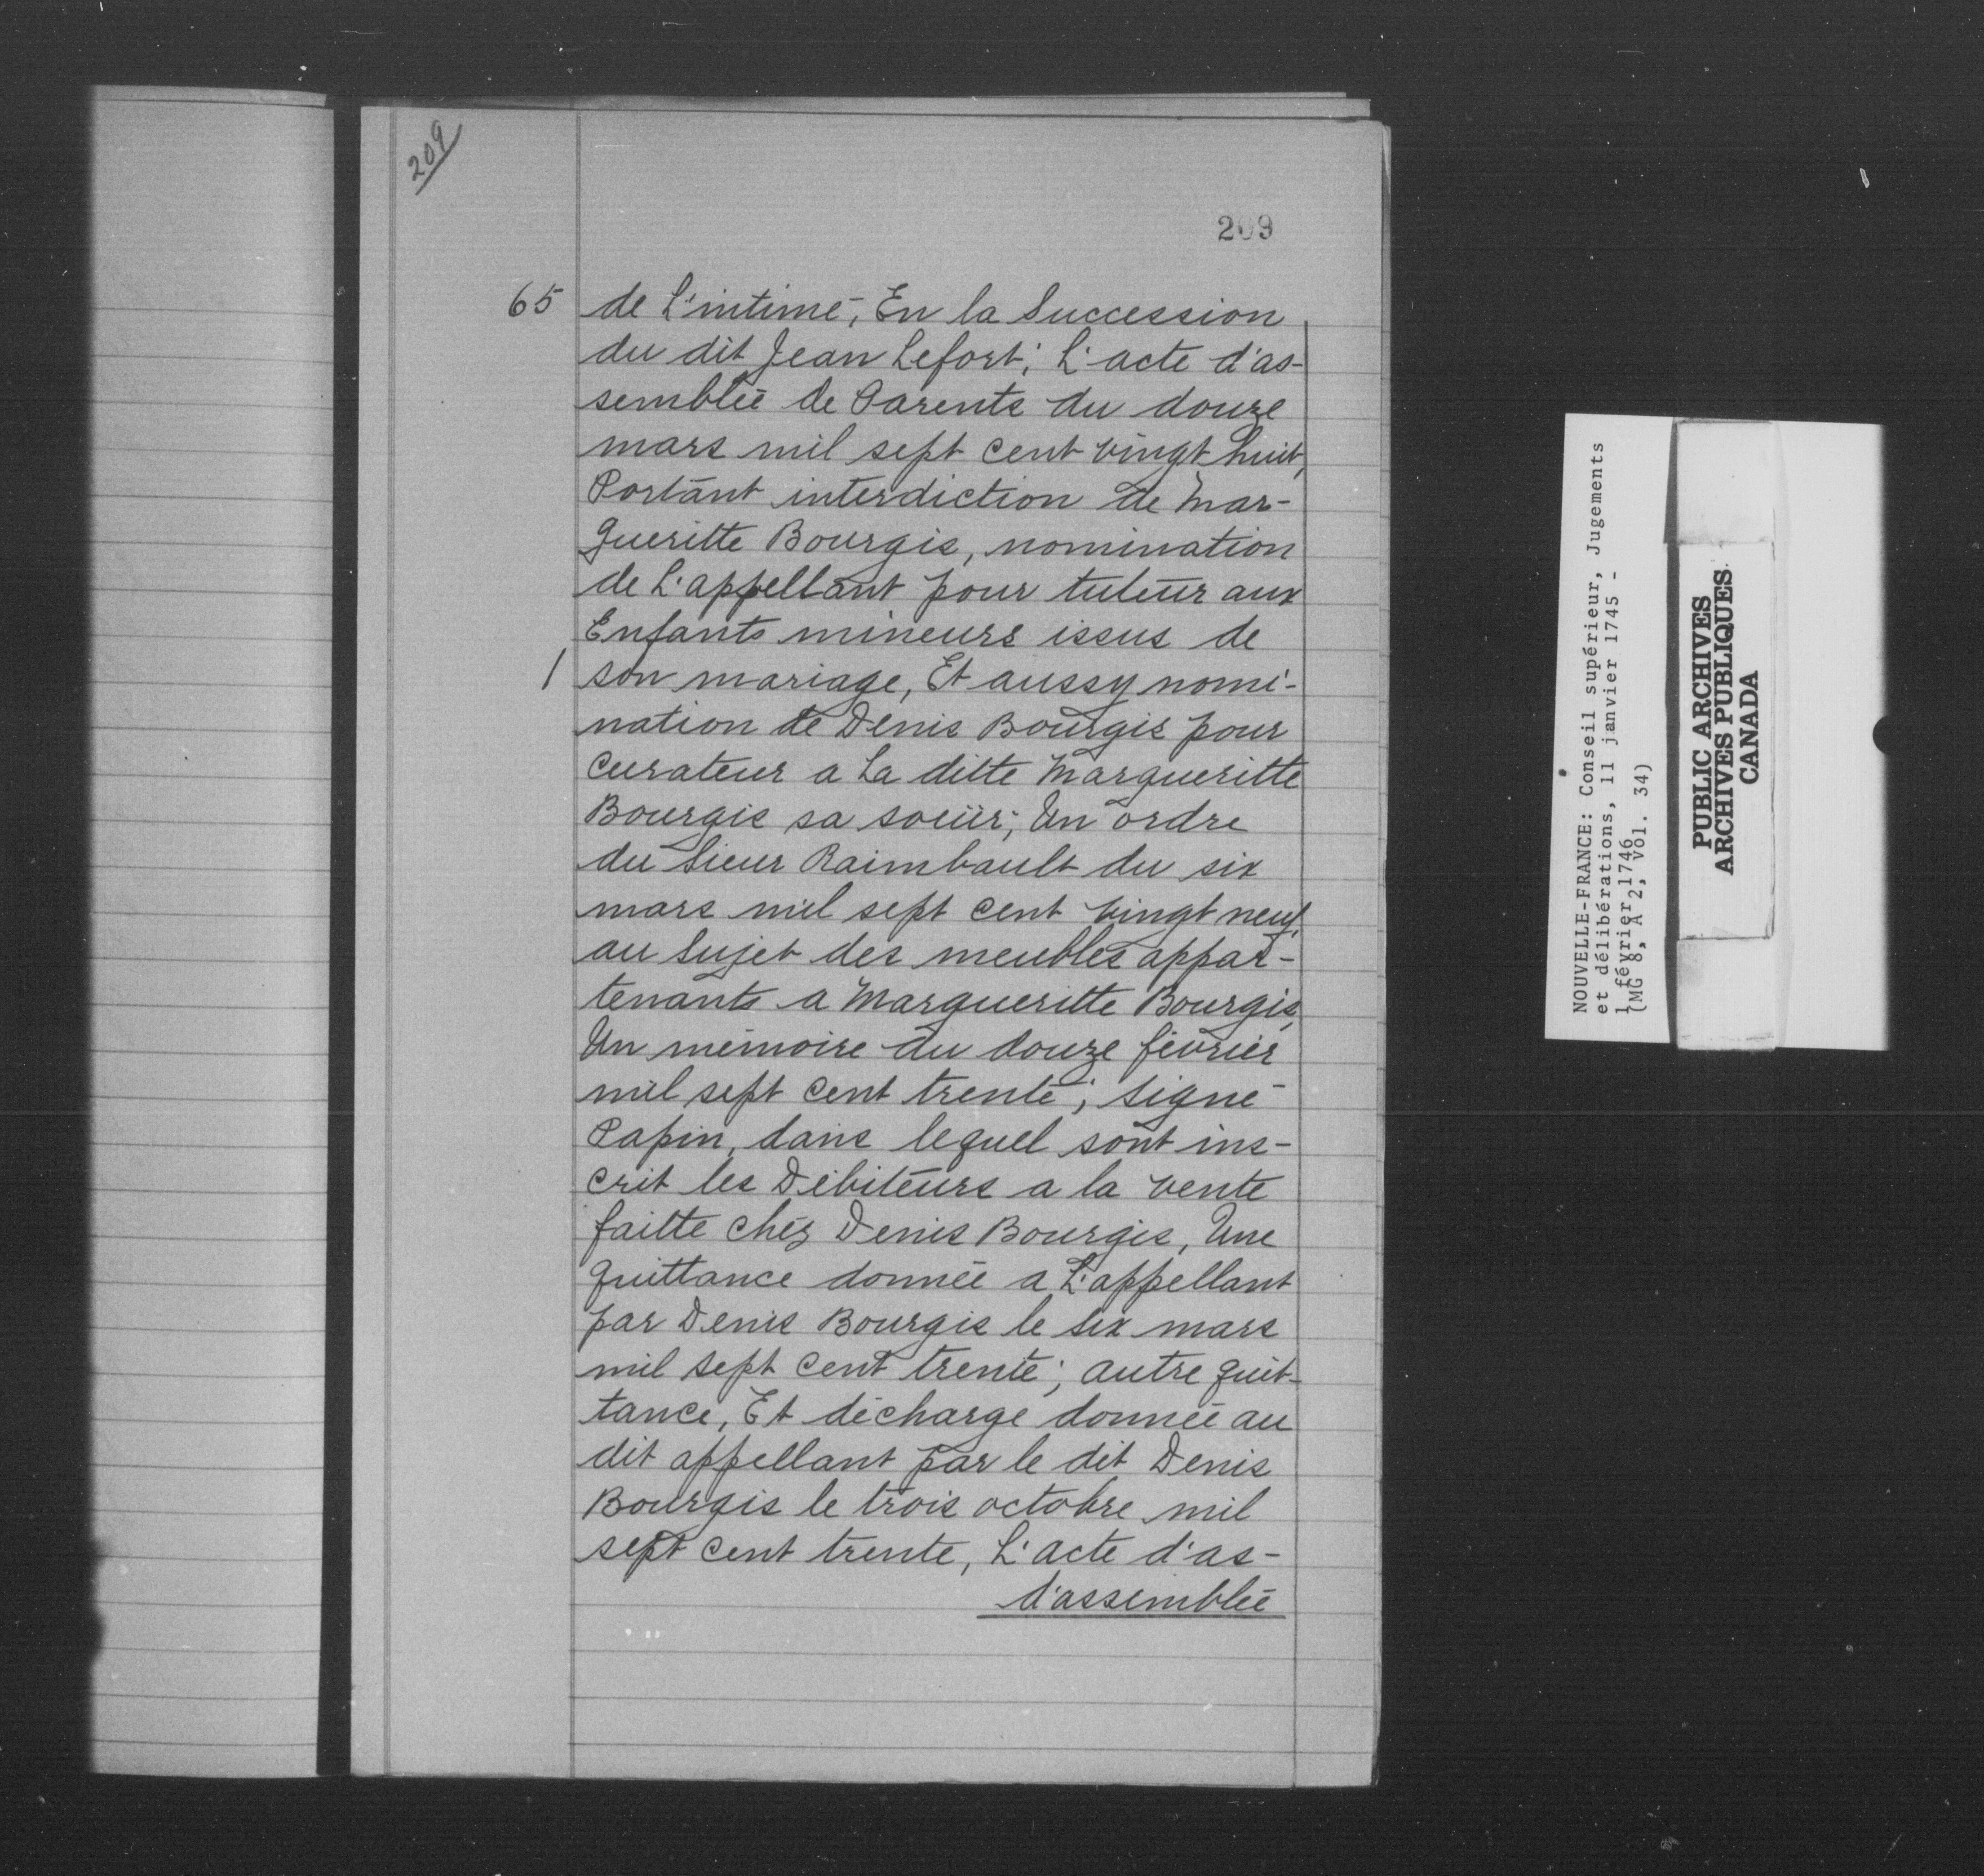 209
209
65 de L'intimé, En la Succession
du dit Jean Lefort; L'acte d'as-
semblée de Parents du douze
mars mil sept cent vingt huit,
Portant interdiction de Mar-
gueritte Bourgis, nomination
de L'appellant pour tuteur aux
Enfants mineurs issus de
/ son mariage, Et aussy nomi-
nation de Denis Bourgis pour
Curateur a La ditte Margueritte
Bourgis sa soeur; Un ordre
du Sieur Raimbault du six
mars mil sept cent vingt neuf,
au Sujet des meubles appar-
tenants a Margueritte Bourgis,
Un mémoire du douze février
mil sept cent trente; signé
Papin, dans lequel sont ins-
crit les Débiteurs a la vente
faitte chéz Denis Bourgis, Une
quittance donnée a L'appellant
par Denis Bourgis le six mars
mil sept cent trente; autre quit-
tance, Et décharge donnée au
dit appellant par le dit Denis
Bourgis le trois octobre mil
sept cent trente, L'acte d'as-
d'assemblée
NOUVELLE-FRANCE: Conseil supérieur, Jugements
et délibérations, 11 janvier 1745 -
1 février 1746
(MG 8, A 2, vol. 34)
PUBLIC ARCHIVES
ARCHIVES PUBLIQUES
CANADA